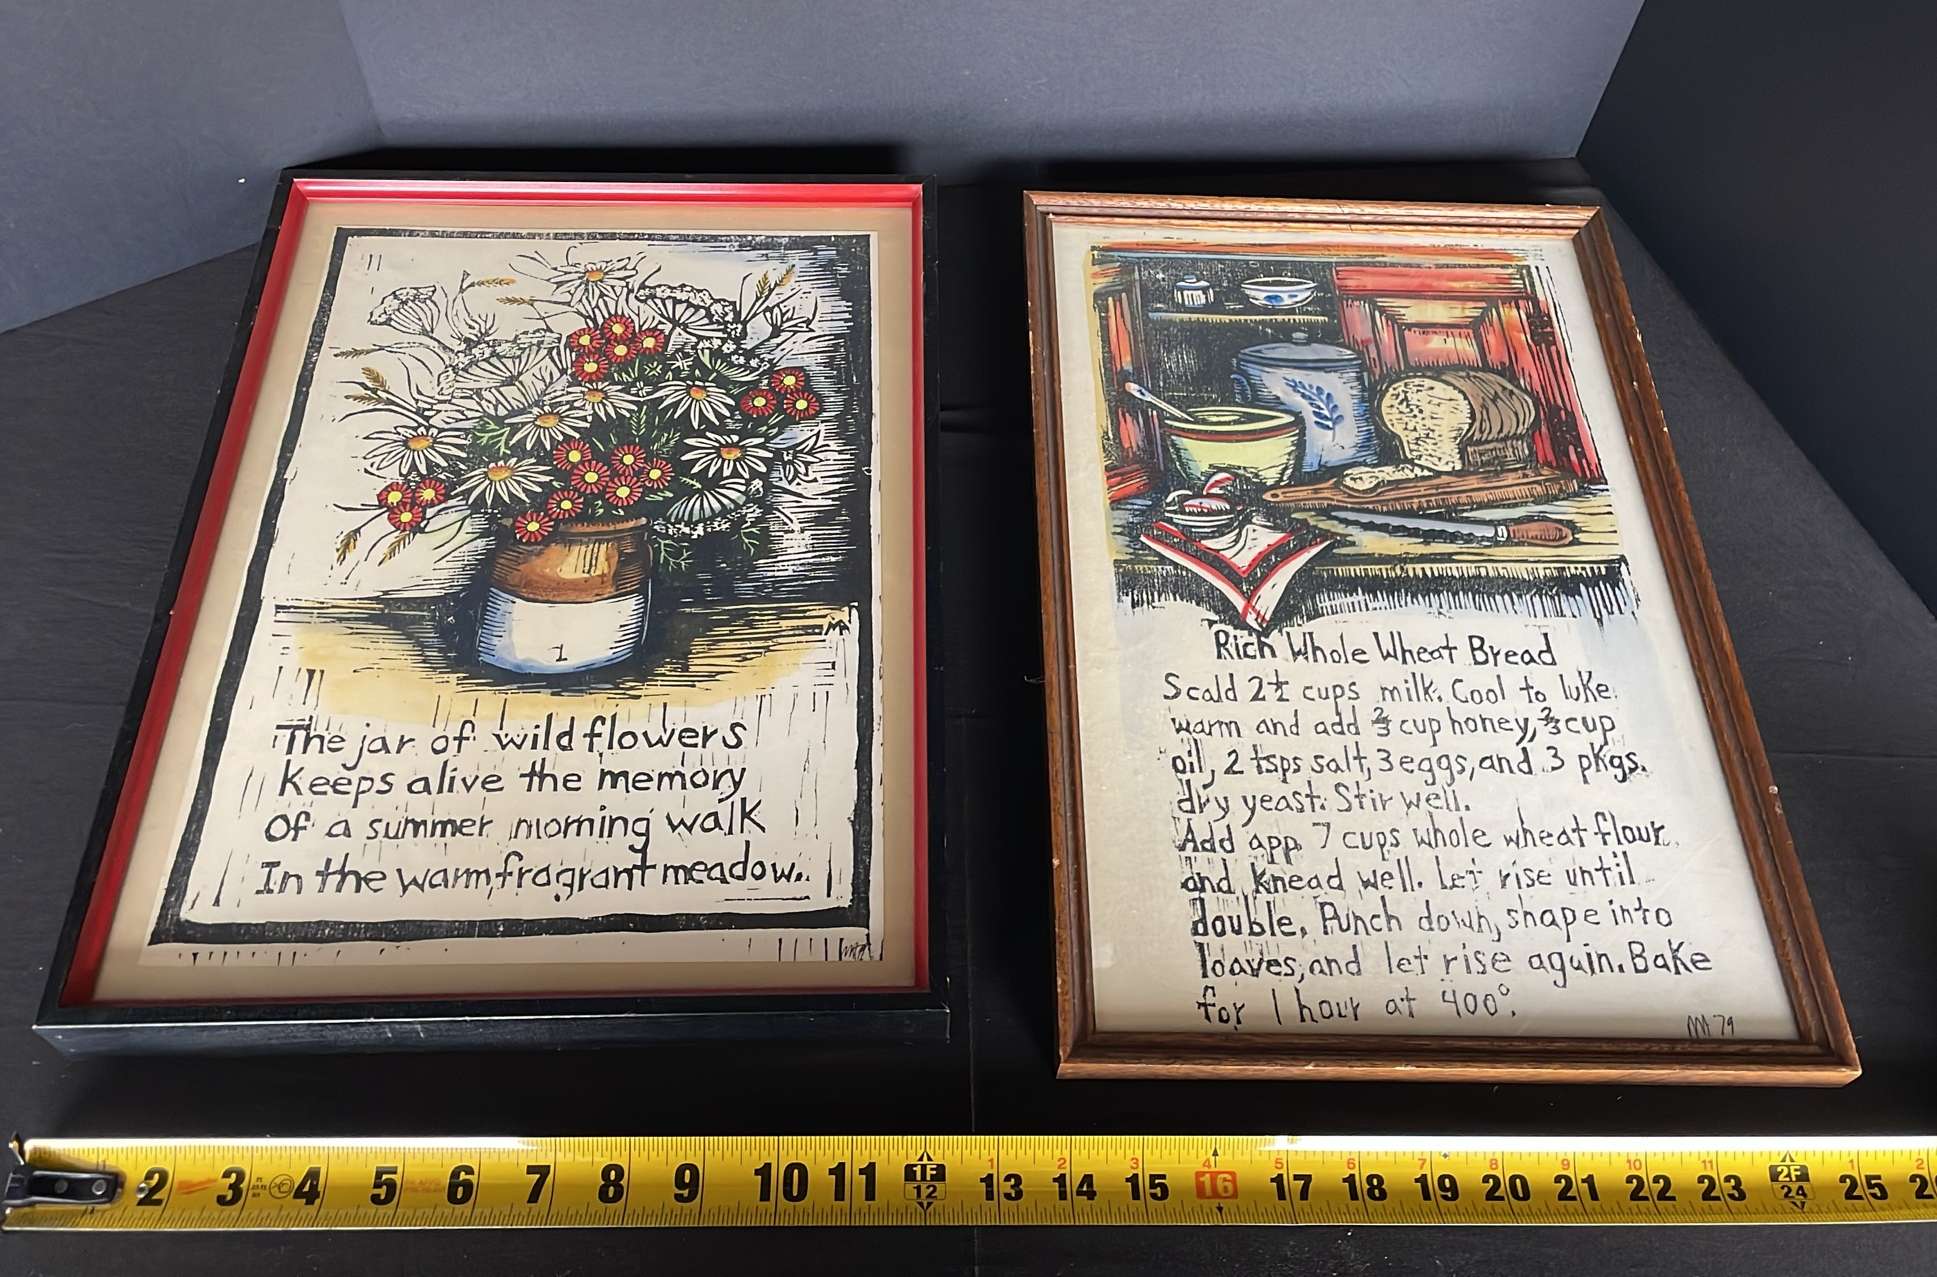 The jar of wild flowers
keeps alive the memory
Of a summer morning walk
In the warm, fragrant meadow.
1
Rich Whole Wheat Bread
Scald 2½ cups milk. Cool to luke
warm and add ⅔ cup honey, ⅔ cup
oil, 2 tsps salt, 3 eggs, and 3 pkgs.
dry yeast. Stir well.
Add app. 7 cups whole wheat flour
and knead well. Let rise until
double. Punch down, shape into
loaves, and let rise again. Bake
for 1 hour at 400°.
'79
1 2 3 4 5 6 7 8 9 10 11 1 2
2 3 4 5 6 7 8 9 10 11 1F 12 13 14 15 16 17 18 19 20 21 22 23 2F 24 25